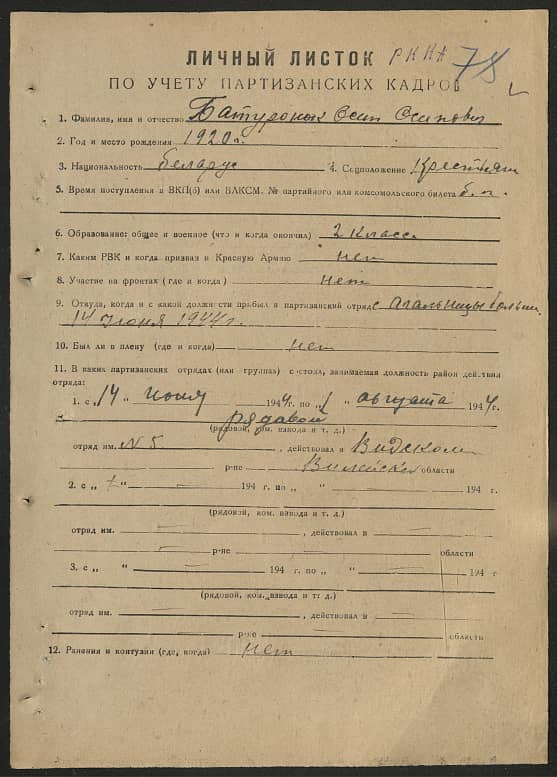 ЛИЧНЫЙ ЛИСТОК РККА 78
ПО УЧЕТУ ПАРТИЗАНСКИХ КАДРОВ
1. Фамилия, имя и отчество Батуронык Осип Осипович
2. Год и место рождения 1920 г.
3. Национальность беларус 4. Соцположение Крестьян
5. Время поступления в ВКП(б) или ВЛКСМ. № партийного или комсомольского билета б. п.
6. Образование: общее и военное (что и когда окончил) 2 класс.
7. Каким РВК и когда призван в Красную Армию нет
8. Участие на фронтах (где и когда) нет
9. Откуда, когда и с какой должности прибыл в партизанский отряд с
14 июня 1944 г.
10. Был ли в плену (где и когда) нет
11. В каких партизанских отрядах (или группах) состоял, занимаемая должность район действия
отряда:
1. с „14 " июня 1944 г. по „1 " августа 1944 г.
рядовой
(рядовой, ком. взвода и т. д.)
отряд им. N 5. , действовал в Видском
р-не Вилейской области
2. с „ " 194 г. по „ " 194 г.
(рядовой, ком. взвода и т. д.)
отряд им. , действовал в
р-не области
3. с „ " 194 г. по „ " 194 г
(рядовой, ком. взвода и т. д.)
отряд им. , действовал в
р-не области
12. Ранения и контузия (где, когда) нет